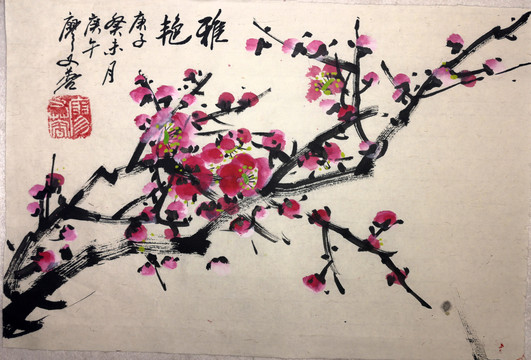 雅艳
庚子
癸未月
庚午
廖文蓉